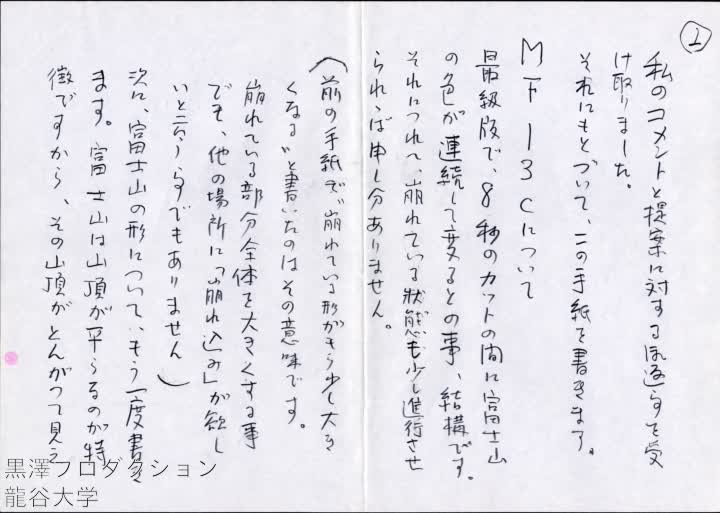 1
私のコメントと提案に対する御返事を受
け取りました。
それにもとづいて、この手紙を書きます。
MF13Cについて
最級版で、8秒のカットの間に富士山
の色が連続して変るとの事、結構です。
それにつれて、崩れている状態も少し進行させ
られゝば申し分ありません。
(前の手紙で"崩れている形がもう少し大き
くなる"と書いたのはその意味です。
崩れている部分全体を大きくする事
でも、他の場所に「崩れ込み」が欲し
いと云う事でもありません)
次に、富士山の形について、もう一度書き
ます。富士山は山頂が平らなのが特
徴ですから、その山頂がとんがって見え
黒澤プロダクション
龍谷大学